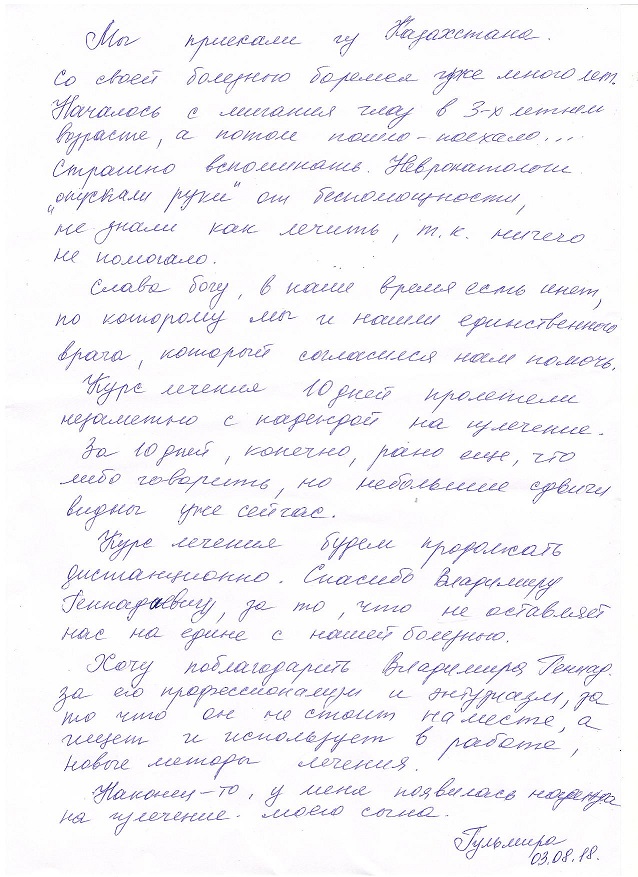 Мы приехали из Казахстана.
Со своей болезнью боремся уже много лет.
Началось с мигания глаз в 3-х летнем
возрасте, а потом пошло-поехало...
Страшно вспоминать. Невропатологи
"опускали руки" от беспомощности,
не знали как лечить, т.к. ничего
не помогало.
Слава богу, в наше время есть инет,
по которому мы и нашли единственного
врача, который согласился нам помочь.
Курс лечения 10 дней пролетели
незаметно с надеждой на излечение.
За 10 дней, конечно, рано еще, что
либо говорить, но небольшие сдвиги
видны уже сейчас.
Курс лечения будем продолжать
дистанционно. Спасибо Владимиру
Геннадиевичу, за то, что не оставляет
нас на едине с нашей болезнью.
Хочу поблагодарить Владимира Геннад.
за его профессионализм и энтузиазм, за
то что он не стоит на месте, а
ищет и использует в работе,
новые методы лечения.
Наконец-то, у меня появилась надежда
на излечение. моего сына.
Гульмира
03.08.18.